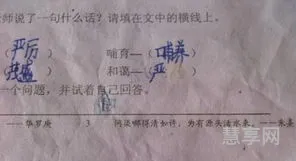 老师说了一句什么话？请填在文中的横线上。
（严厉） 哺育—（哺养）
（茂盛） 和蔼—（严
一个问题，并试着自己回答。
——华罗庚 3 问渠哪得清如许，为有源头活水来。——朱熹
慧享网